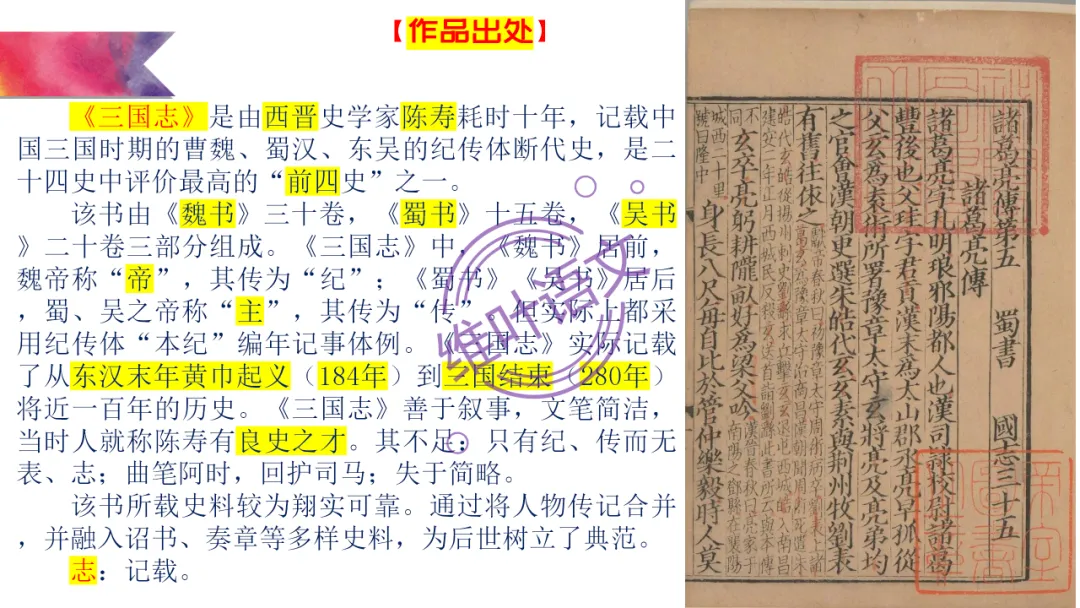 【作品出处】
《三国志》是由西晋史学家陈寿耗时十年，记载中
国三国时期的曹魏、蜀汉、东吴的纪传体断代史，是二
十四史中评价最高的“前四史”之一。
该书由《魏书》三十卷，《蜀书》十五卷，《吴书
》二十卷三部分组成。《三国志》中，《魏书》居前，
魏帝称“帝”，其传为“纪”；《蜀书》《吴书》居后
，蜀、吴之帝称“主”，其传为“传”，但实际上都采
用纪传体“本纪”编年记事体例。《三国志》实际记载
了从东汉末年黄巾起义（184年）到三国结束（280年）
将近一百年的历史。《三国志》善于叙事，文笔简洁，
当时人就称陈寿有良史之才。其不足：只有纪、传而无
表、志；曲笔阿时，回护司马；失于简略。
该书所载史料较为翔实可靠。通过将人物传记合并
，并融入诏书、奏章等多样史料，为后世树立了典范。
志：记载。
维叶语文
諸葛亮傳第五 蜀書 國志三十五
諸葛亮傳
諸葛亮字孔明琅邪陽都人也漢司隸校尉諸葛
豐後也父珪字君貢漢末為太山郡丞亮早孤從
父玄為袁術所署豫章太守玄將亮及亮弟均
之官會漢朝更選朱皓代玄玄素與荊州牧劉表
有舊往依之
玄卒亮躬耕隴畝好為梁父吟
身長八尺每自比於管仲樂毅時人莫